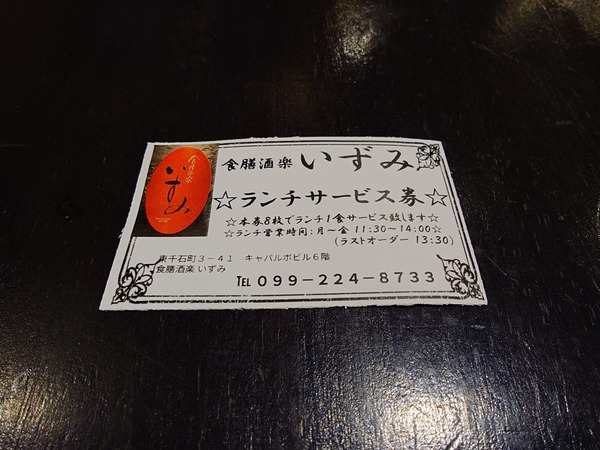 いずみ
食膳酒楽 いずみ
☆ランチサービス券☆
☆本券8枚でランチ1食サービス致します☆
☆ランチ営業時間:月~金 11:30~14:00☆
(ラストオーダー 13:30)
東千石町3-41 キャパルボビル6階
食膳酒楽 いずみ
TEL 099-224-8733